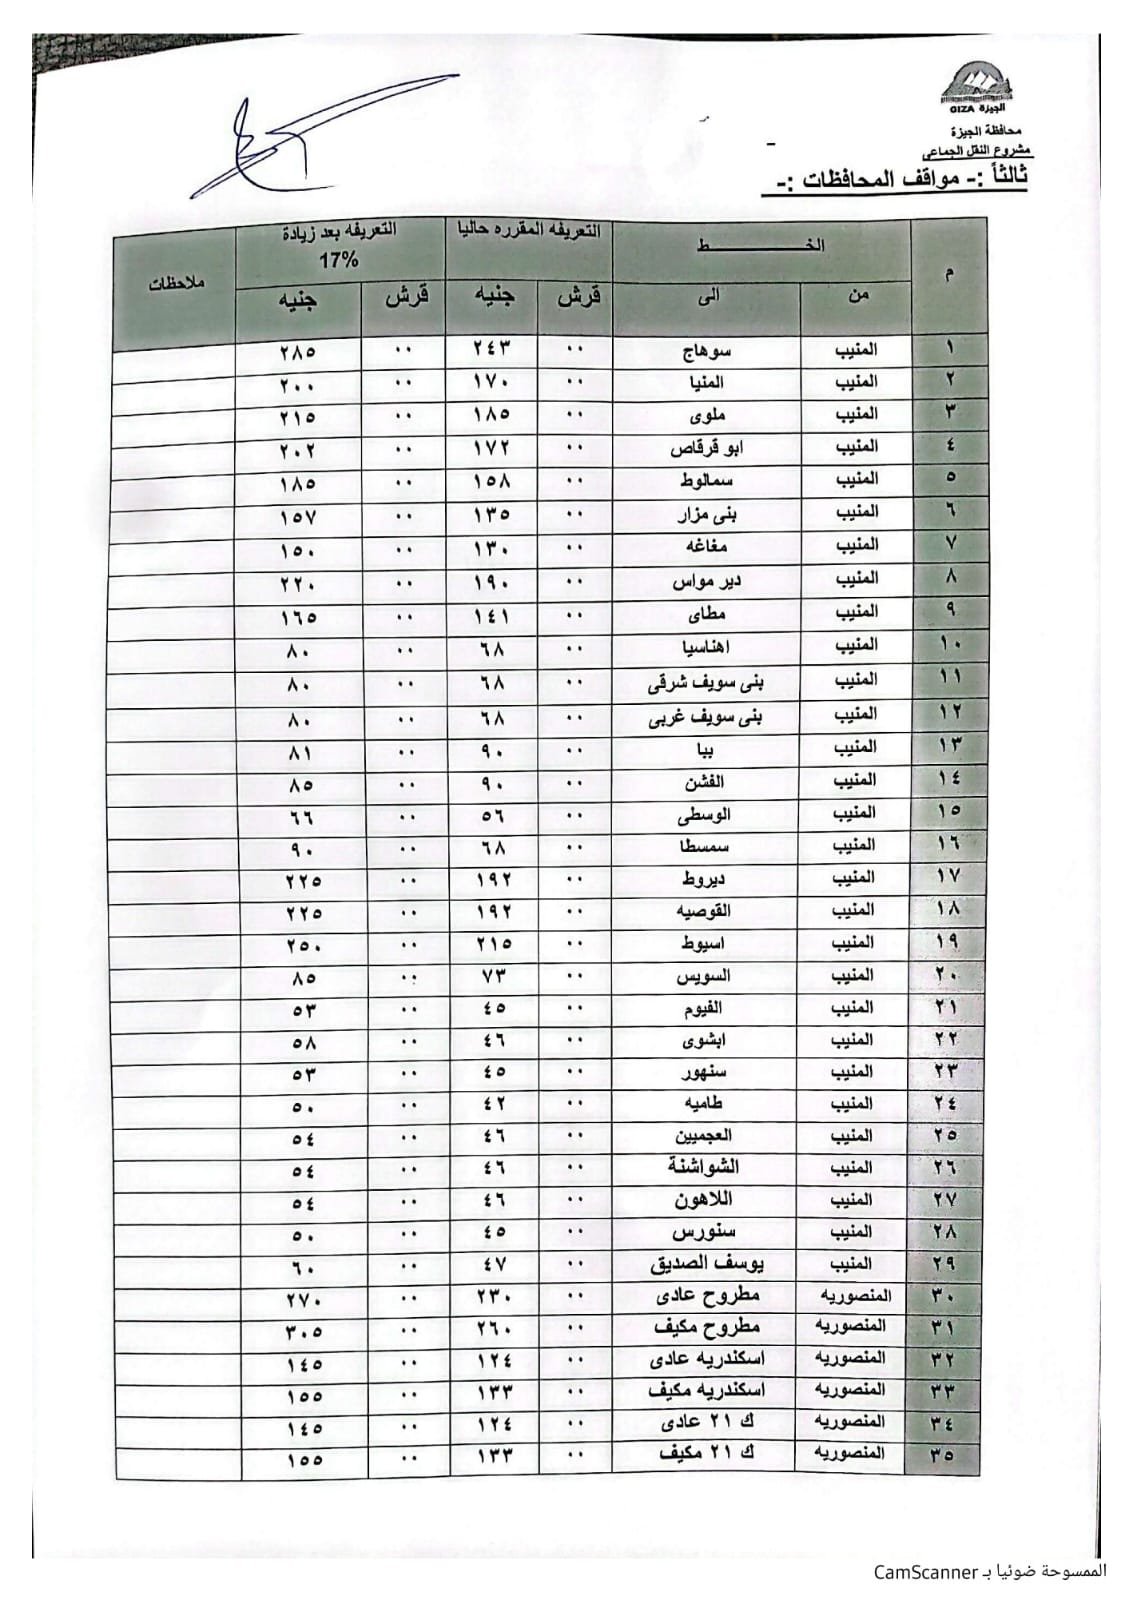 الجيزة GIZA
محافظة الجيزة
مشروع النقل الجماعى
ثالثاً :- مواقف المحافظات :-
م الخـــــــــط التعريفه المقرره حاليا التعريفه بعد زيادة 17% ملاحظات
من الى قرش جنيه قرش جنيه
١ المنيب سوهاج ٠٠ ٢٤٣ ٠٠ ٢٨٥
٢ المنيب المنيا ٠٠ ١٧٠ ٠٠ ٢٠٠
٣ المنيب ملوى ٠٠ ١٨٥ ٠٠ ٢١٥
٤ المنيب ابو قرقاص ٠٠ ١٧٢ ٠٠ ٢٠٢
٥ المنيب سمالوط ٠٠ ١٥٨ ٠٠ ١٨٥
٦ المنيب بنى مزار ٠٠ ١٣٥ ٠٠ ١٥٧
٧ المنيب مغاغه ٠٠ ١٣٠ ٠٠ ١٥٠
٨ المنيب دير مواس ٠٠ ١٩٠ ٠٠ ٢٢٠
٩ المنيب مطاى ٠٠ ١٤١ ٠٠ ١٦٥
١٠ المنيب اهناسيا ٠٠ ٦٨ ٠٠ ٨٠
١١ المنيب بنى سويف شرقى ٠٠ ٦٨ ٠٠ ٨٠
١٢ المنيب بنى سويف غربى ٠٠ ٦٨ ٠٠ ٨٠
١٣ المنيب ببا ٠٠ ٩٠ ٠٠ ٨١
١٤ المنيب الفشن ٠٠ ٩٠ ٠٠ ٨٥
١٥ المنيب الوسطى ٠٠ ٥٦ ٠٠ ٦٦
١٦ المنيب سمسطا ٠٠ ٦٨ ٠٠ ٩٠
١٧ المنيب ديروط ٠٠ ١٩٢ ٠٠ ٢٢٥
١٨ المنيب القوصيه ٠٠ ١٩٢ ٠٠ ٢٢٥
١٩ المنيب اسيوط ٠٠ ٢١٥ ٠٠ ٢٥٠
٢٠ المنيب السويس ٠٠ ٧٣ ٠٠ ٨٥
٢١ المنيب الفيوم ٠٠ ٤٥ ٠٠ ٥٣
٢٢ المنيب ابشوى ٠٠ ٤٦ ٠٠ ٥٨
٢٣ المنيب سنهور ٠٠ ٤٥ ٠٠ ٥٣
٢٤ المنيب طاميه ٠٠ ٤٢ ٠٠ ٥٠
٢٥ المنيب العجميين ٠٠ ٤٦ ٠٠ ٥٤
٢٦ المنيب الشواشنة ٠٠ ٤٦ ٠٠ ٥٤
٢٧ المنيب اللاهون ٠٠ ٤٦ ٠٠ ٥٤
٢٨ المنيب سنورس ٠٠ ٤٥ ٠٠ ٥٠
٢٩ المنيب يوسف الصديق ٠٠ ٤٧ ٠٠ ٦٠
٣٠ المنصوريه مطروح عادى ٠٠ ٢٣٠ ٠٠ ٢٧٠
٣١ المنصوريه مطروح مكيف ٠٠ ٢٦٠ ٠٠ ٣٠٥
٣٢ المنصوريه اسكندريه عادى ٠٠ ١٢٤ ٠٠ ١٤٥
٣٣ المنصوريه اسكندريه مكيف ٠٠ ١٣٣ ٠٠ ١٥٥
٣٤ المنصوريه ك ٢١ عادى ٠٠ ١٢٤ ٠٠ ١٤٥
٣٥ المنصوريه ك ٢١ مكيف ٠٠ ١٣٣ ٠٠ ١٥٥
الممسوحة ضوئيا بـ CamScanner